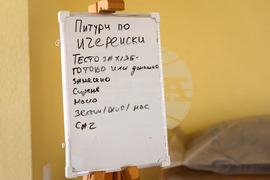 Питури по
ичеренски
Тесто за хляб-
готово или домашно
занесено
Сирене
Масло
зехтин/олио/мас
сол